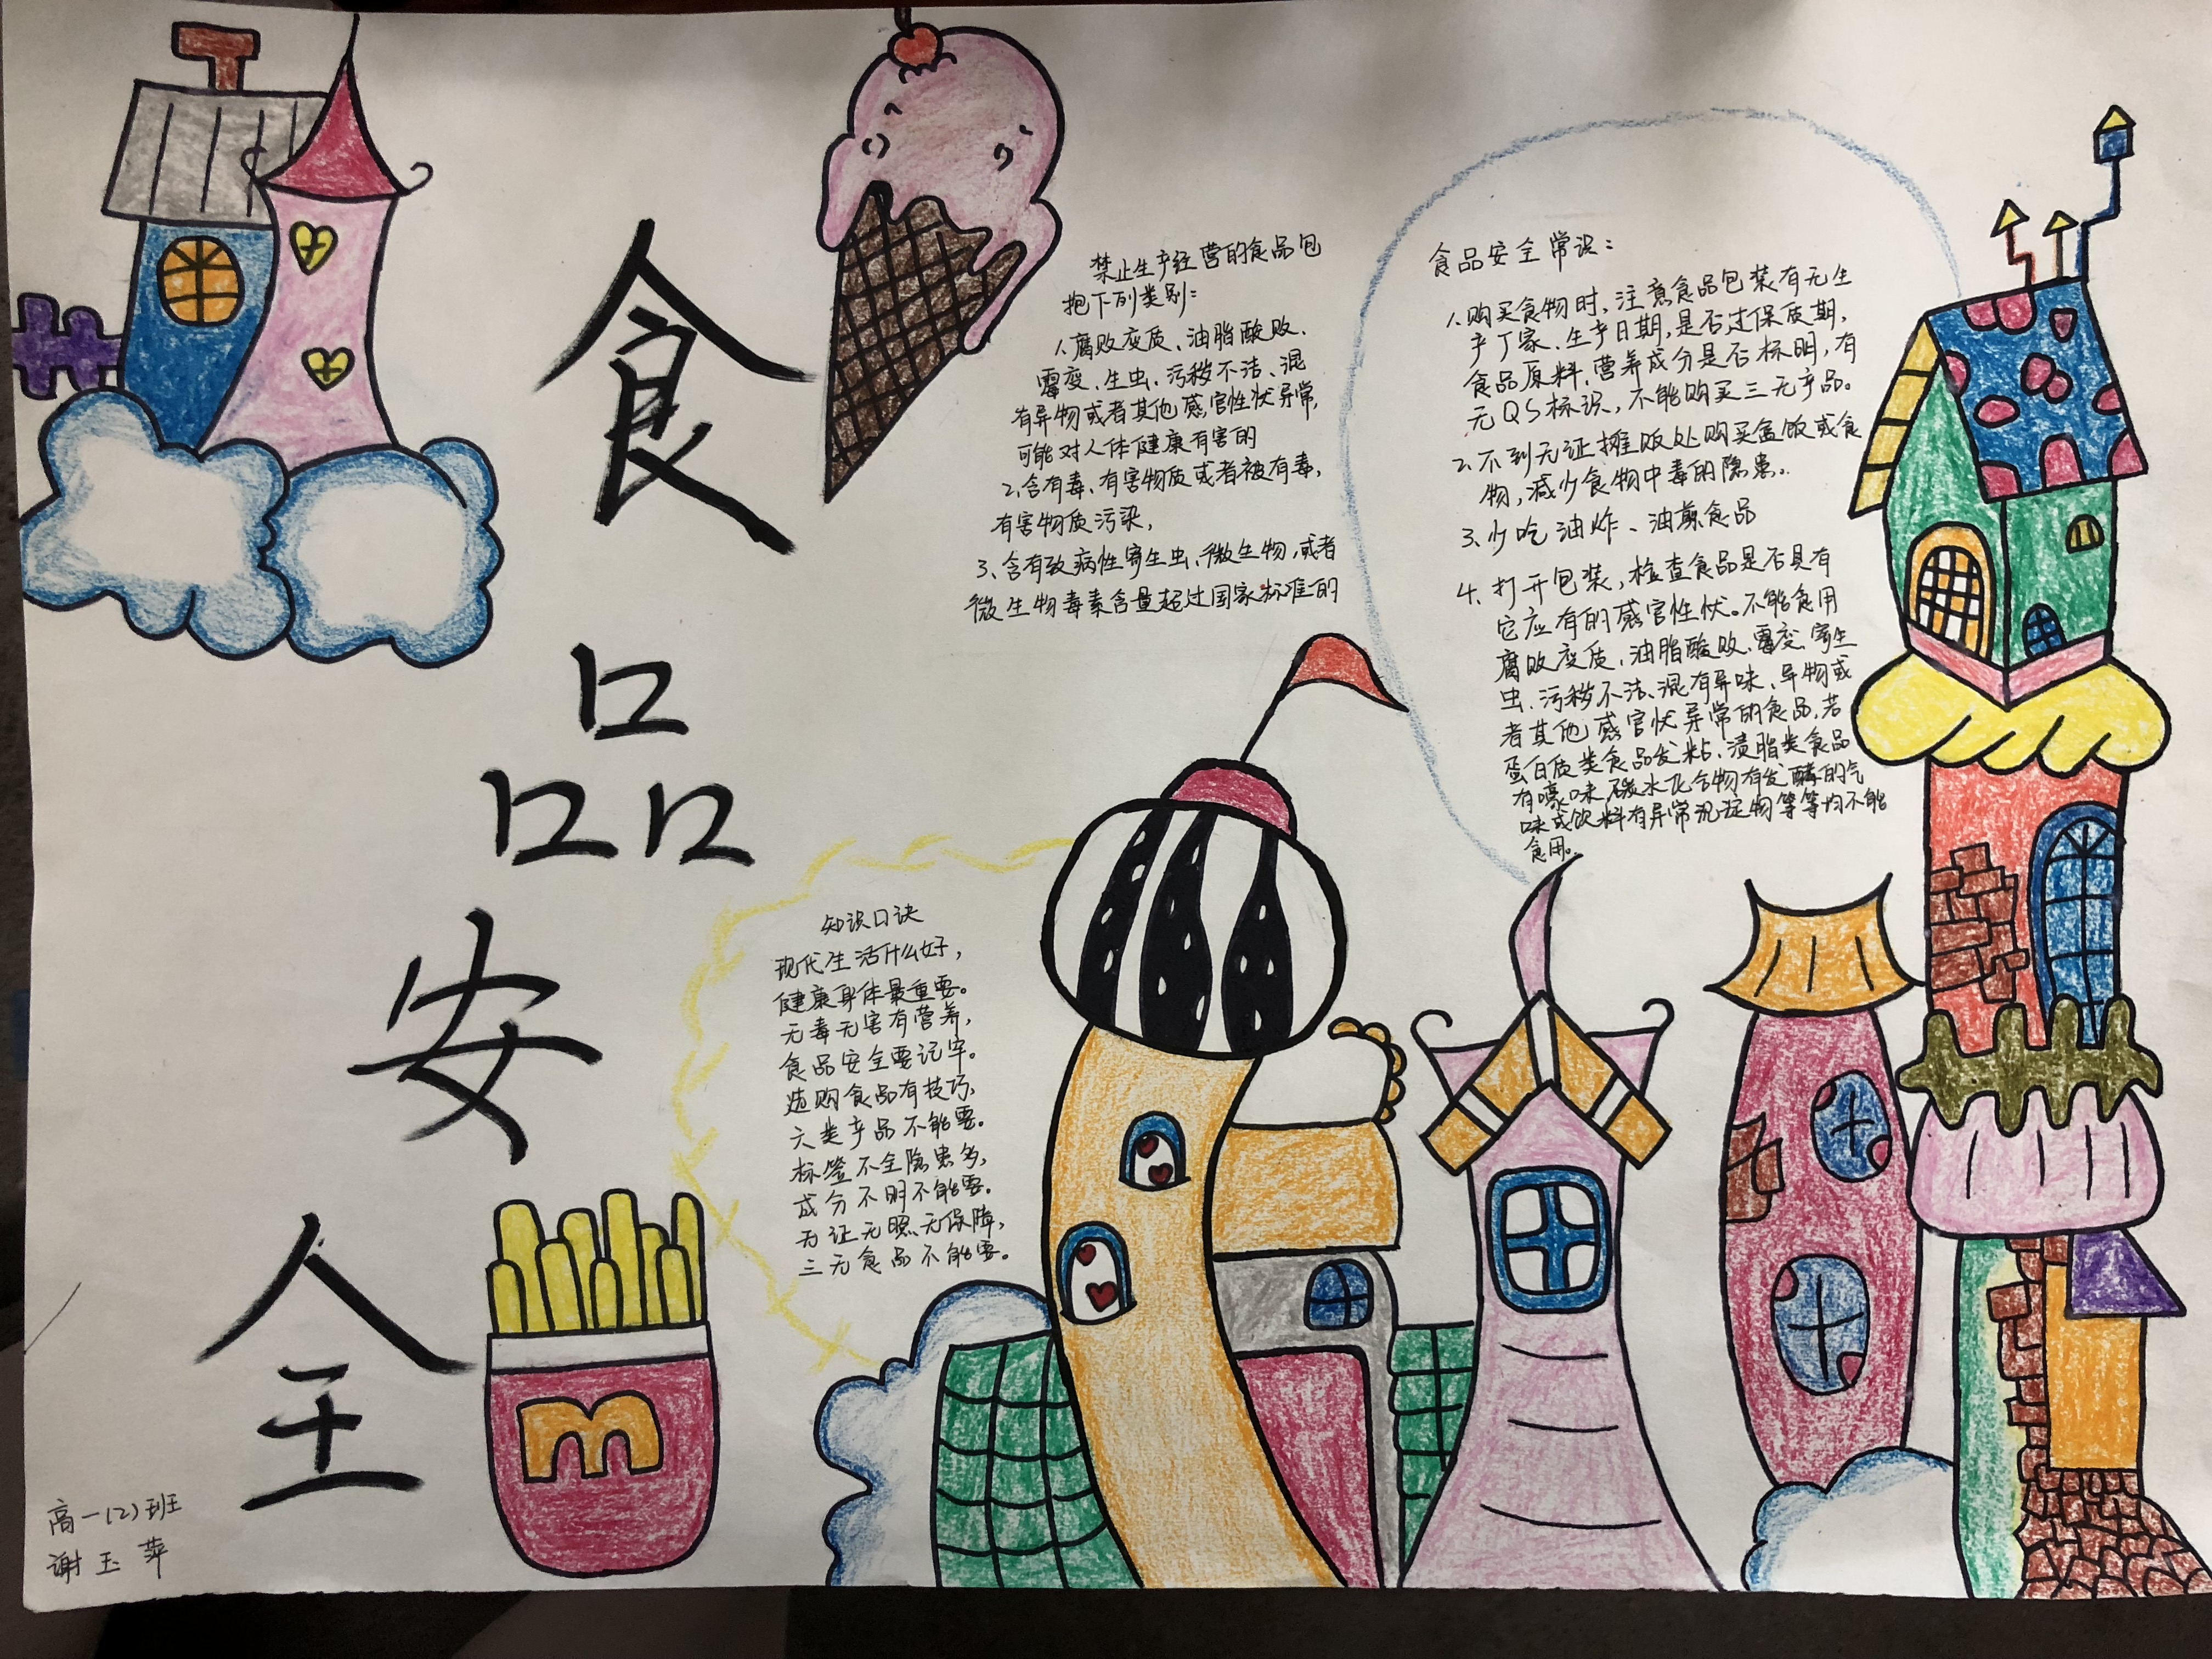 食
品
安
全
禁止生产经营的食品包
抱下列类别:
1、腐败变质、油脂酸败、
霉变、生虫、污秽不洁、混
有异物或者其他感官性状异常,
可能对人体健康有害的
2、含有毒、有害物质或者被有毒,
有害物质污染,
3、含有致病性寄生虫、微生物,或者
微生物毒素含量超过国家标准的
食品安全常识:
1、购买食物时,注意食品包装有无生
产厂家、生产日期,是否过保质期,
食品原料、营养成分是否标明,有
无QS标识,不能购买三无产品。
2、不到无证摊贩处购买盒饭或食
物,减少食物中毒的隐患。
3、少吃油炸、油煎食品
4、打开包装,检查食品是否具有
它应有的感官性状。不能食用
腐败变质、油脂酸败、霉变、寄生
虫、污秽不洁、混有异味、异物或
者其他感官状异常的食品,若
蛋白质类食品发粘、渍脂类食品
有嚎味,碳水化合物有发酵的气
味或饮料有异常沉淀物等等均不能
食用。
知识口诀
现代生活什么好,
健康身体最重要。
无毒无害有营养,
食品安全要记牢。
选购食品有技巧,
六类产品不能要。
标签不全隐患多,
成分不明不能要。
无证无照无保障,
三无食品不能要。
m
高一(2)班
谢玉萍